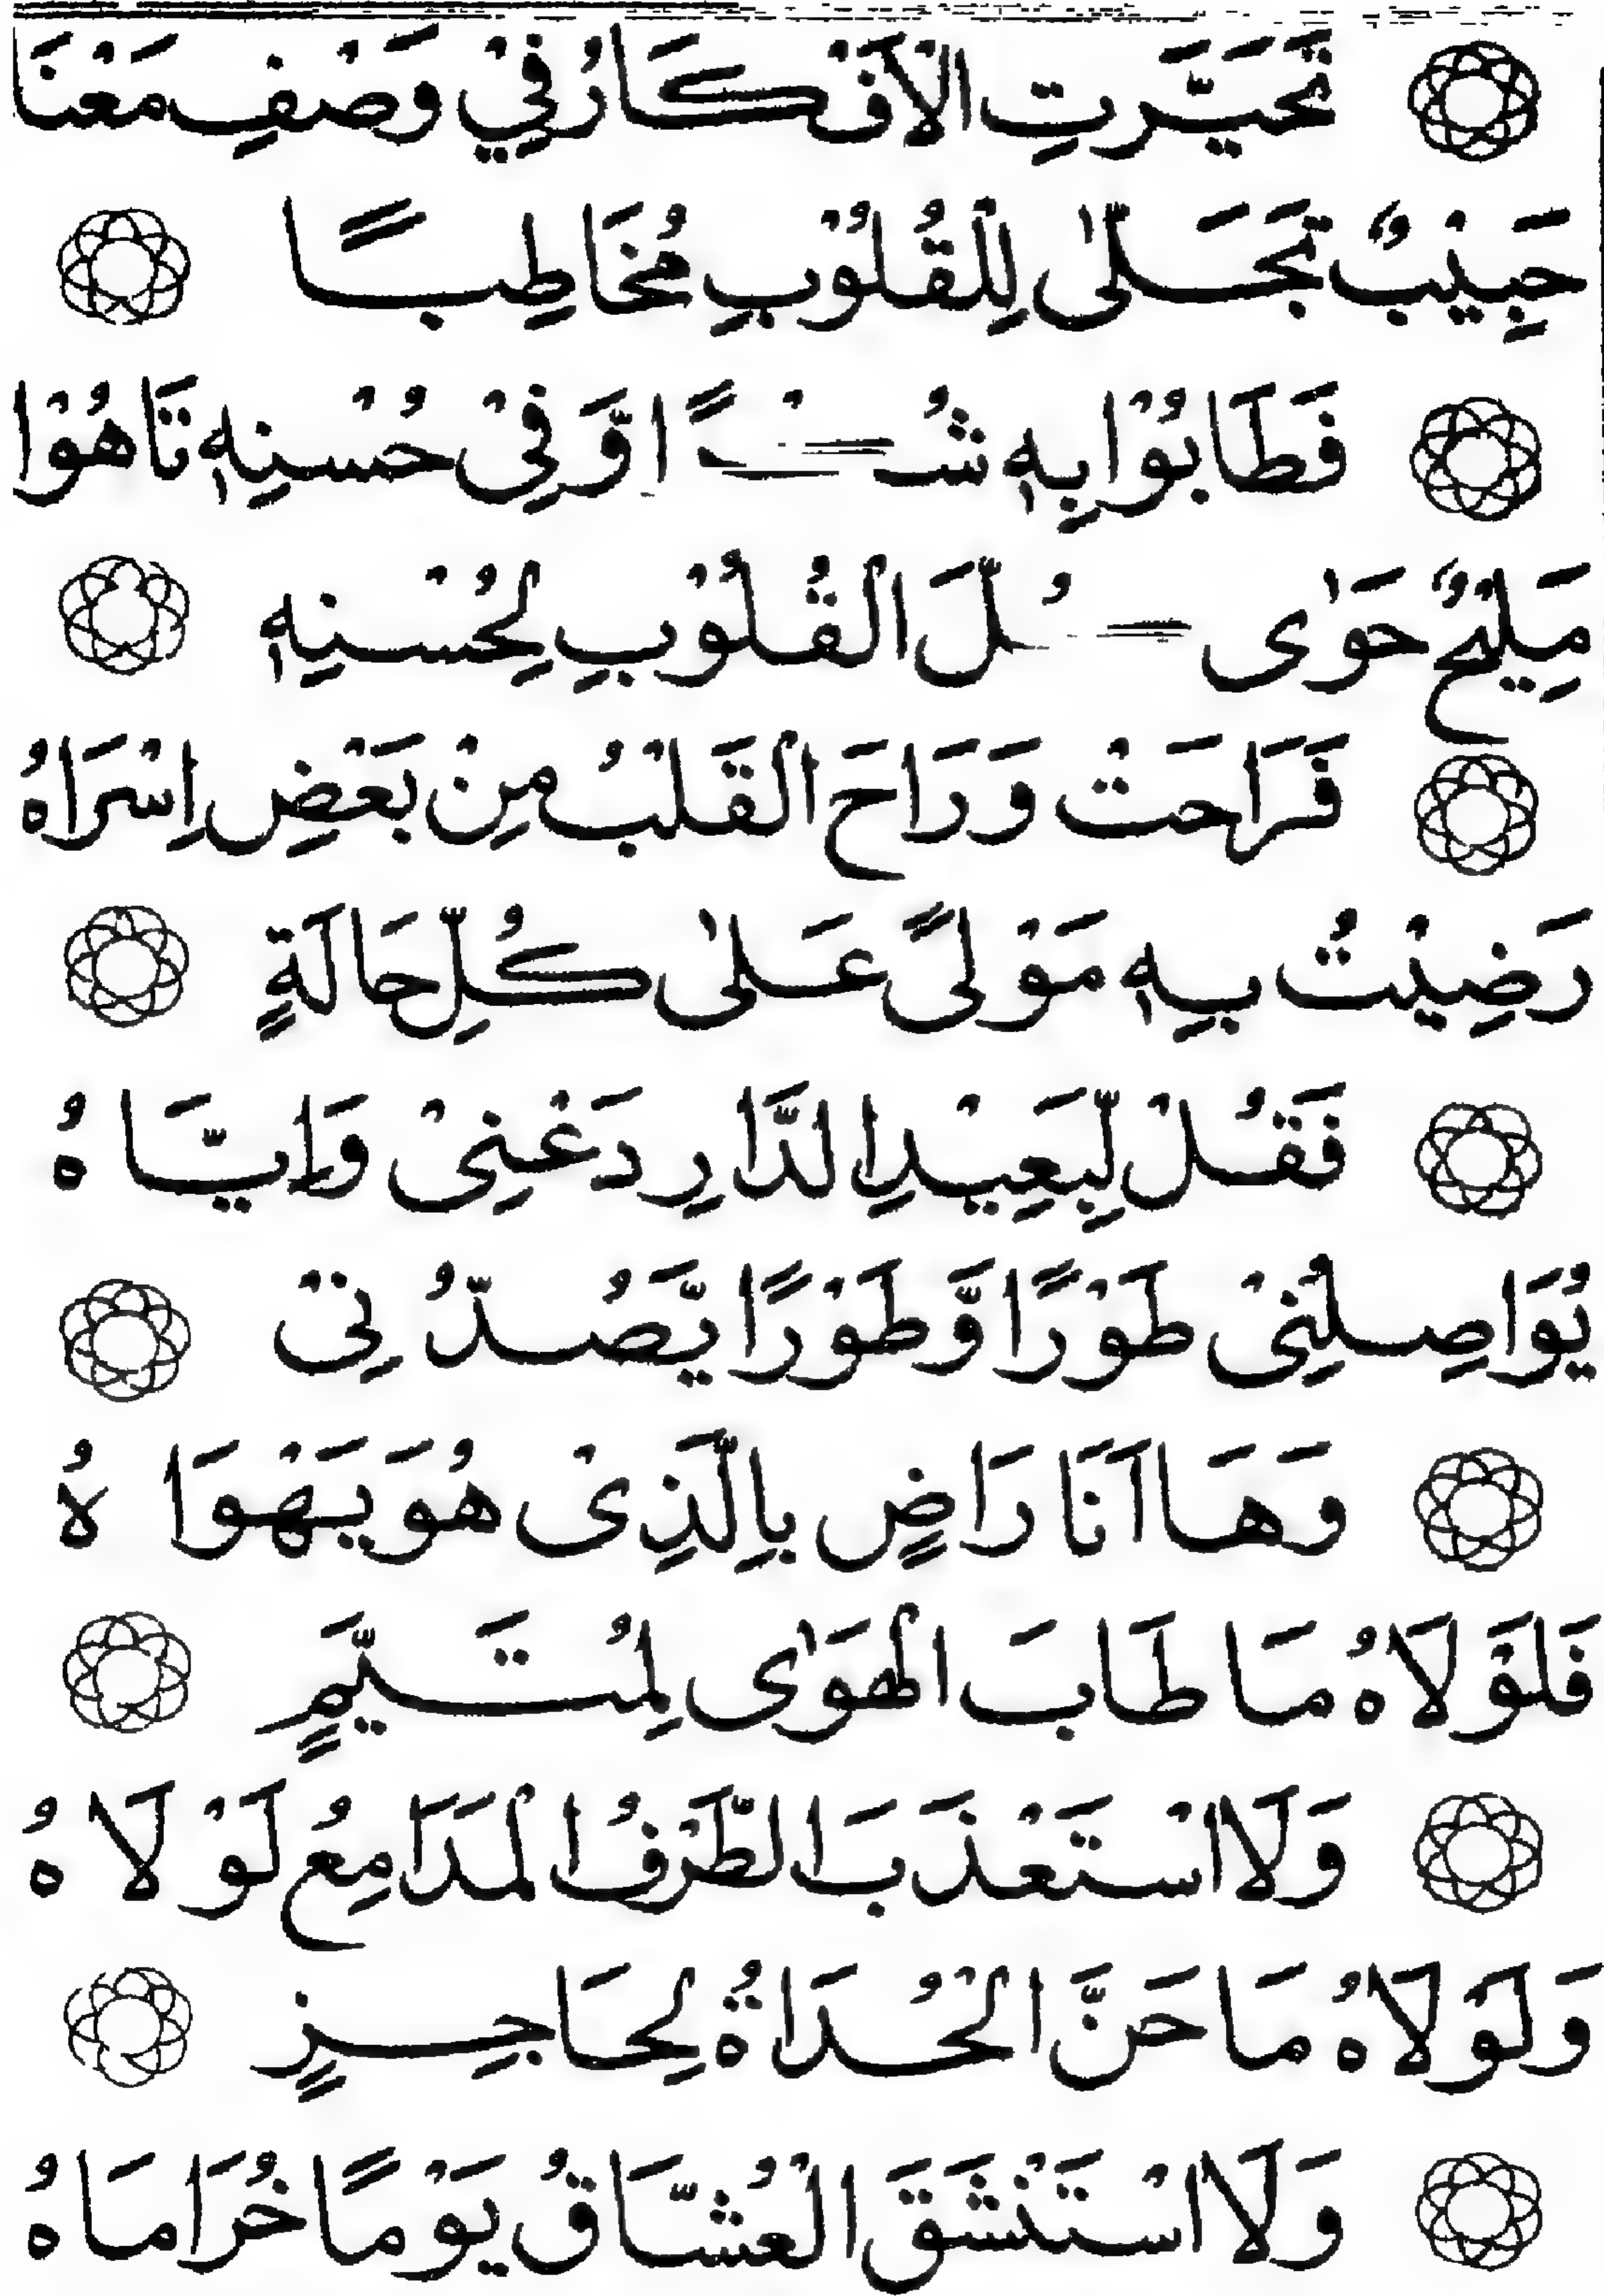 تَحَيَّرَتِ الْاَفْكَارُ فِيْ وَصْفِ مَعْنَا
حَبِيْبٌ تَجَلّٰى لِلْقُلُوْبِ مُخَاطِبًا
فَطَابُوْا بِهٖ وَّفِيْ حُسْنِهٖ تَاهُوْا
مَلِيْحٌ حَوٰى كُلَّ الْقُلُوْبِ لِحُسْنِهٖ
فَرَاحَتْ وَرَاحَ الْقَلْبُ مِنْ بَعْضِ اِسْرَاهُ
رَضِيْتُ بِهٖ مَوْلًى عَلٰى كُلِّ حَالَةٍ
فَقُلْ لِّبَعِيْدِ الدَّارِ دَعْنِيْ وَاِيَّاهُ
يُوَاصِلُنِيْ طَوْرًا وَّطَوْرًا يَّصُدُّنِيْ
وَهَا اَنَا رَاضٍ بِالَّذِيْ هُوَ يَهْوَاهُ
فَلَوْلَاهُ مَا طَابَ الْهَوٰى لِمُتَيَّمٍ
وَلَا اسْتَعْذَبَ الطَّرْفُ الْمَدَامِعُ لَوْلَاهُ
وَلَوْلَاهُ مَا حَنَّ الْحُدَاةُ لِحَاجِزٍ
وَلَا اسْتَنْشَقَ الْعُشَّاقُ يَوْمًا خُزَامَاهُ